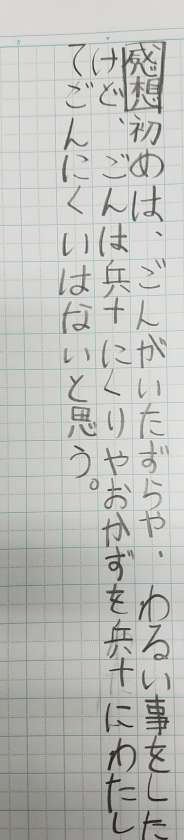 感想 初めは、ごんがいたずらや、わるい事をした
けど、ごんは兵十にくりやおかずを兵十にわたし
てごんにくいはないと思う。